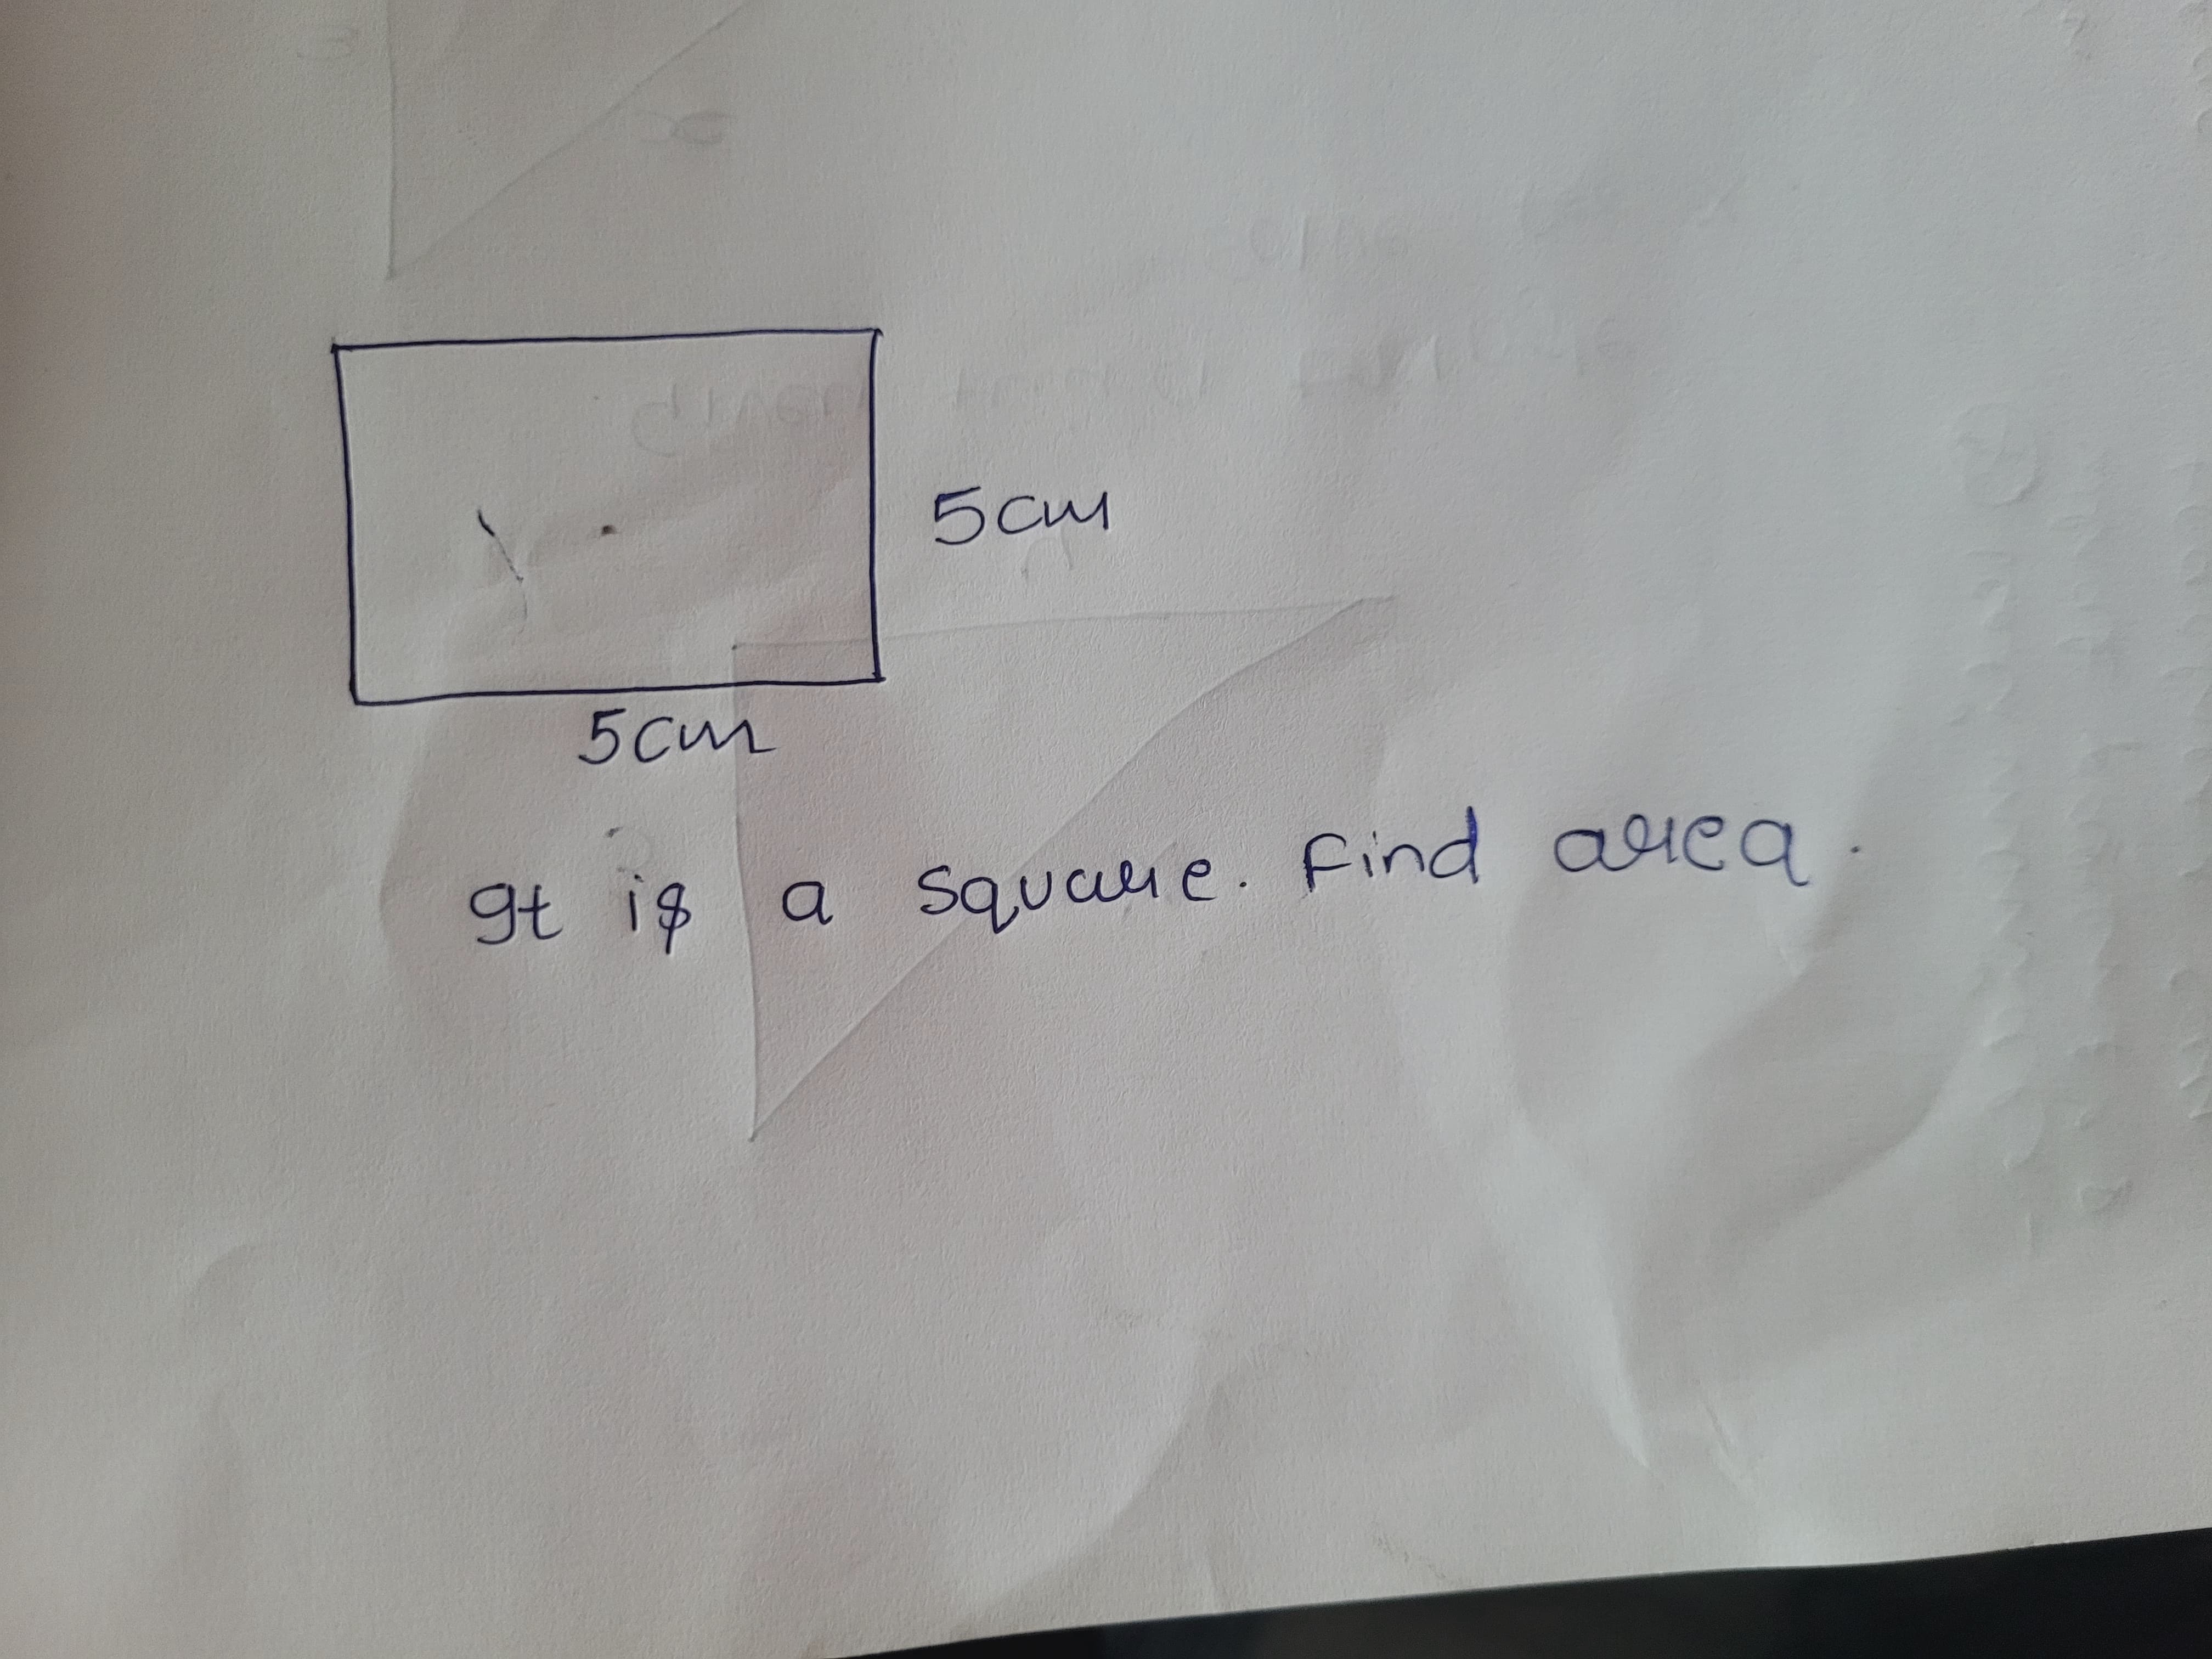 5cm
5cm
It is a square. Find area.